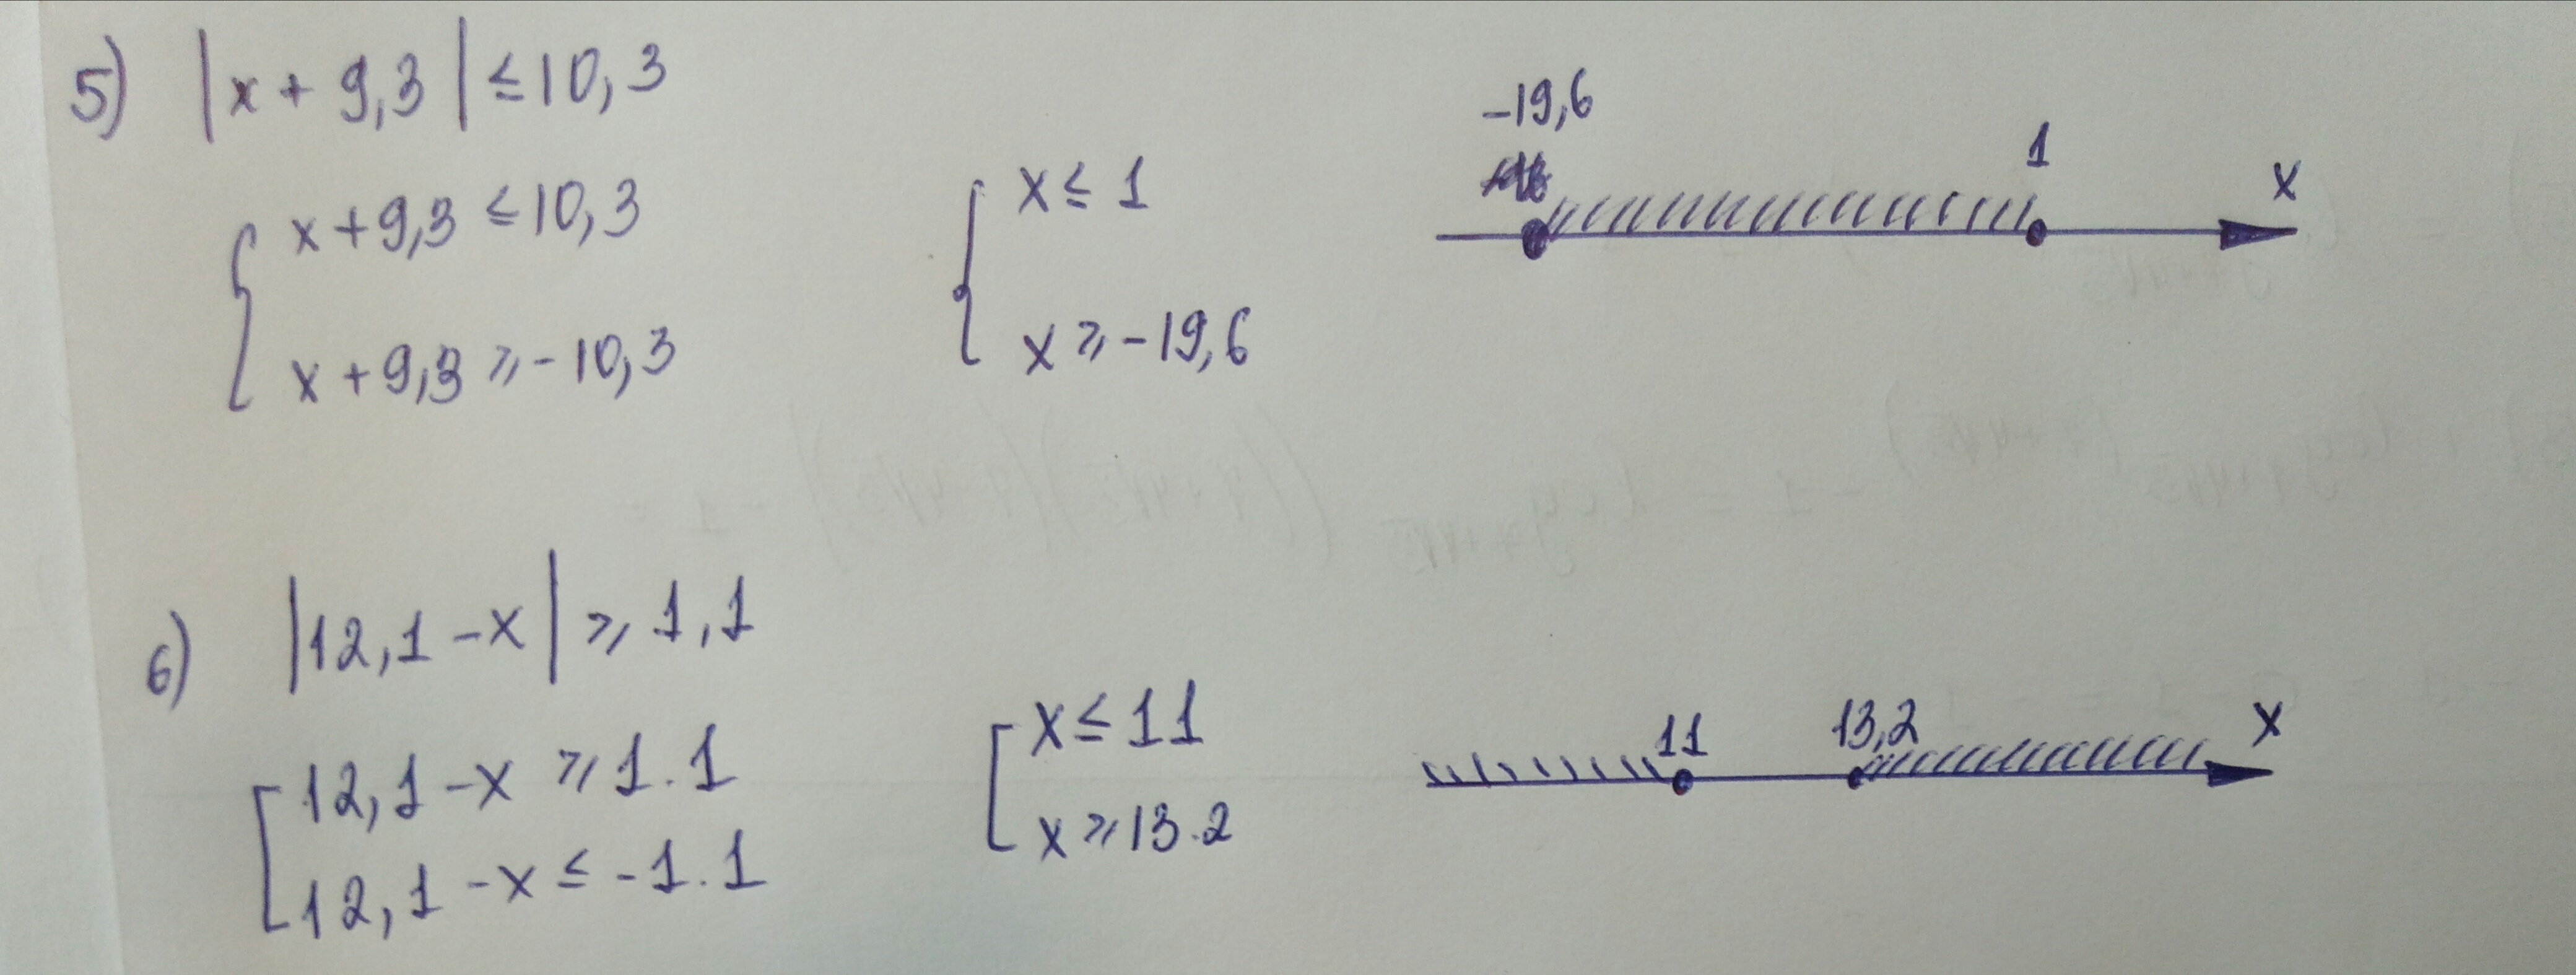 5) |x + 9,3| ≤ 10,3
{ x + 9,3 ≤ 10,3
x + 9,3 ⩾ - 10,3
{ x ≤ 1
x ⩾ - 19,6
-19,6
1
x
6) |12,1 - x| ⩾ 1,1
[ 12,1 - x ⩾ 1.1
12,1 - x ≤ - 1.1
[ x ≤ 11
x ⩾ 13.2
11
13,2
x